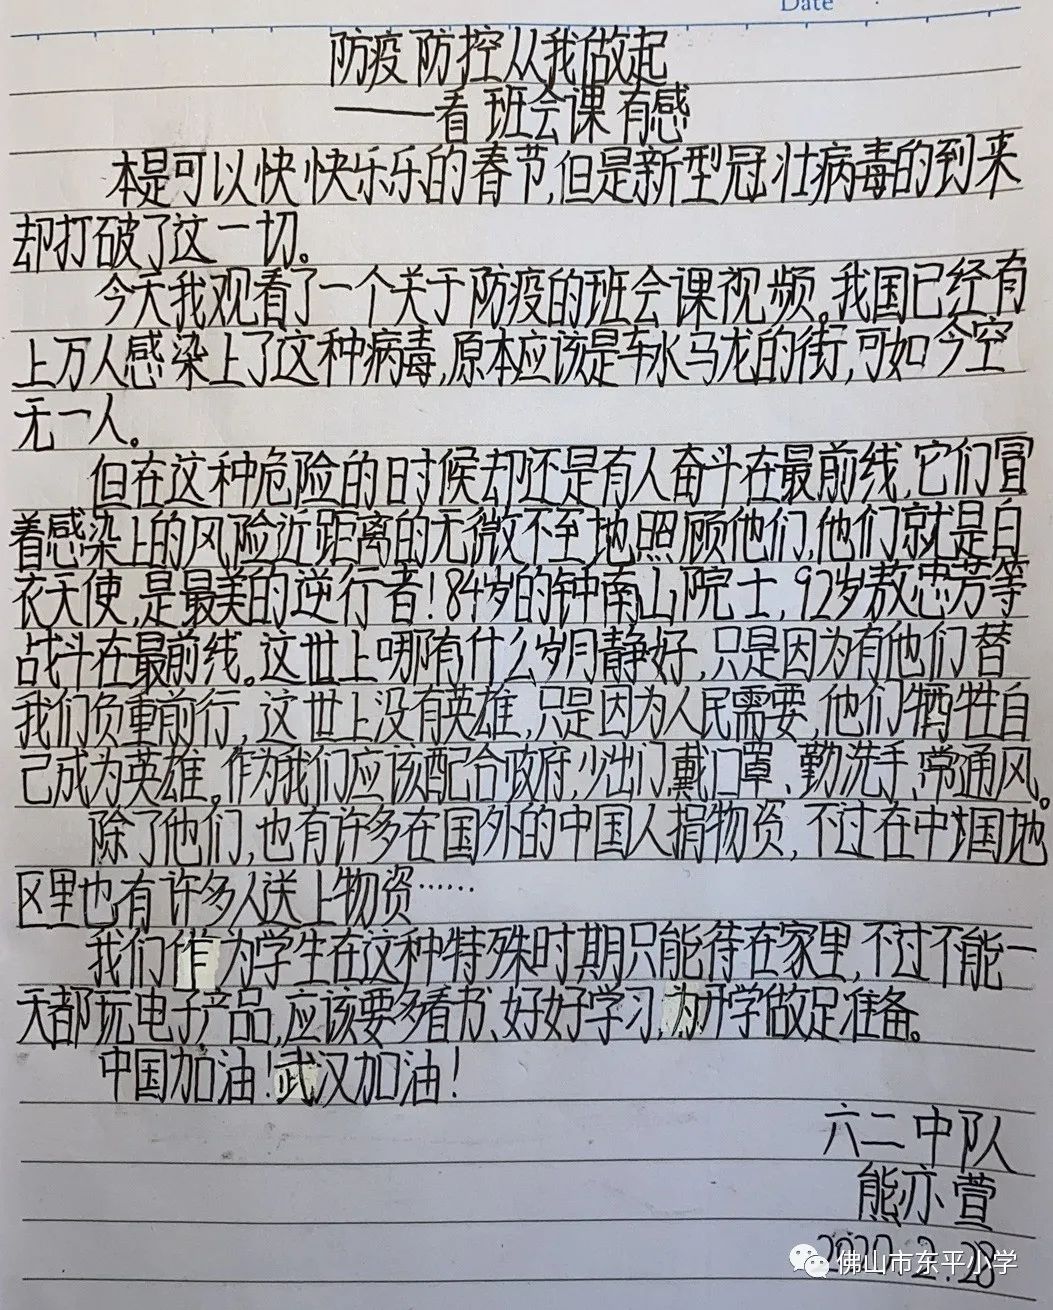 Date
防疫防控从我做起
——看班会课有感
本是可以快快乐乐的春节,但是新型冠壮病毒的到来
却打破了这一切。
今天我观看了一个关于防疫的班会课视频。我国已经有
上万人感染上了这种病毒,原本应该是车水马龙的街,可如今空
无一人。
但在这种危险的时候却还是有人奋斗在最前线,它们冒
着感染上的风险近距离的无微不至地照顾他们,他们就是白
衣天使,是最美的逆行者!84岁的钟南山院士,92岁敖忠芳等
战斗在最前线。这世上哪有什么岁月静好,只是因为有他们替
我们负重前行,这世上没有英雄,只是因为人民需要,他们牺牲自
己成为英雄。作为我们应该配合政府,少出门、戴口罩、勤洗手、常通风。
除了他们,也有许多在国外的中国人捐物资,不过在中国地
区里也有许多人送上物资……
我们作为学生在这种特殊时期只能待在家里,不过不能一
天都玩电子产品,应该要多看书、好好学习,为开学做足准备。
中国加油!武汉加油!
六二中队
熊亦萱
2020.2.28
佛山市东平小学